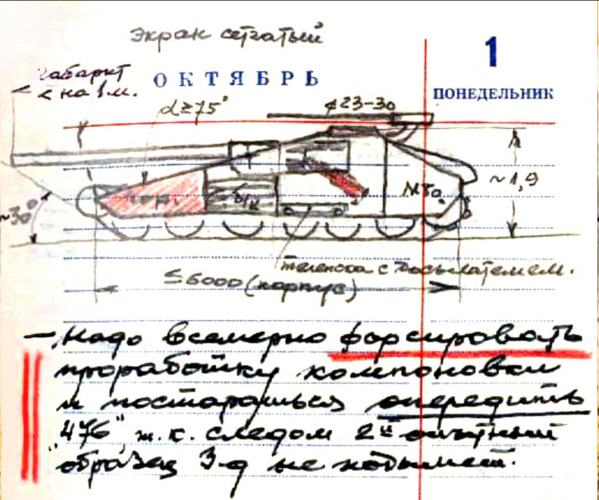 Экран сетчатый
габарит
< на 1 м.
ОКТЯБРЬ
1
ПОНЕДЕЛЬНИК
α≥75°
⌀23-30
~30°
МТО
~1,9
тележка с досылателем.
≤6000 (корпус)
— Надо всемерно форсировать
проработку компоновки
и постараться опередить
"476", т.к. следом 2ой опытный
образец З-д не подымет.